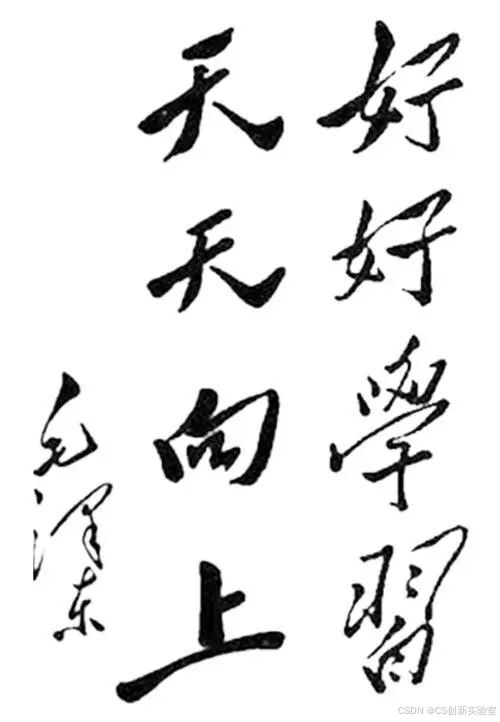 好好學習
天天向上
毛澤东
CSDN @CS创新实验室